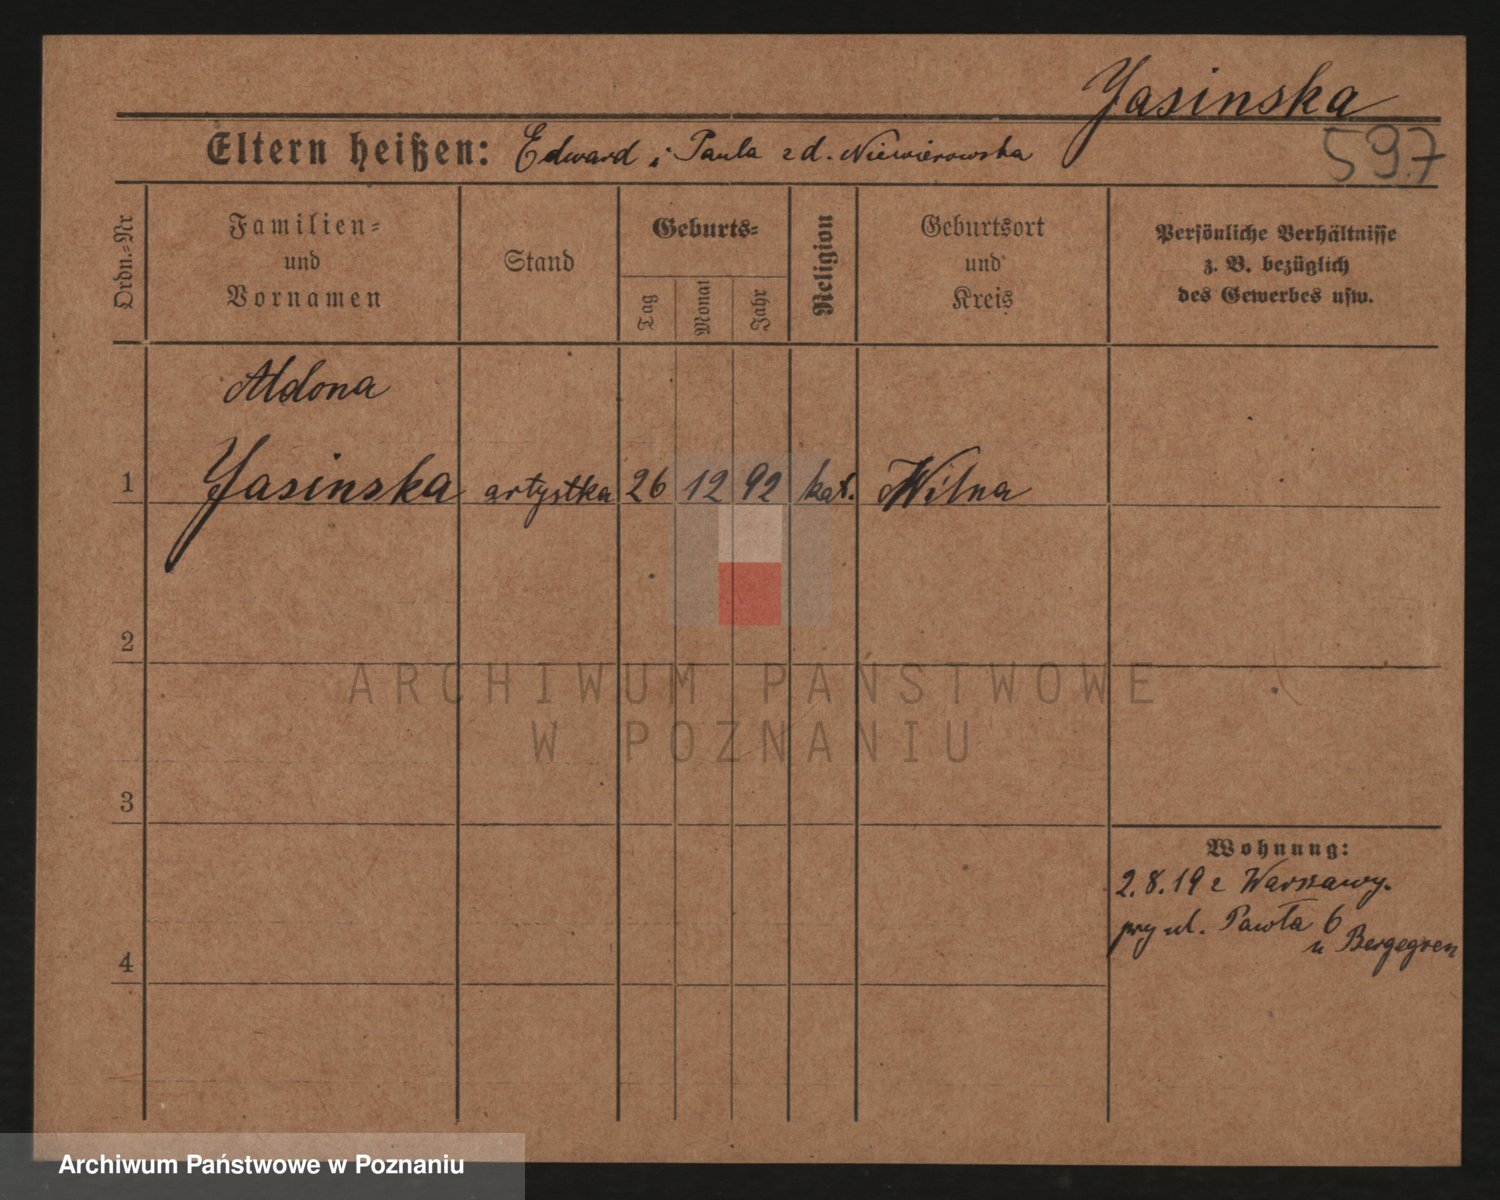 Yasinska
Eltern heißen: Edward i Paula z d. Niewierowska
597
Ordn.-Nr
Familien-
und
Vornamen
Stand
Geburts-
Tag
Monat
Jahr
Religion
Geburtsort
und
Kreis
Persönliche Verhältnisse
z. B. bezüglich
des Gewerbes usw.
Aldona
1 Yasinska artystka 26 12 92 kat. Wilna
2
ARCHIWUM PAŃSTWOWE
W POZNANIU
3
Wohnung:
2.8.19 z Warszawy.
przy ul. Pawła 6
u Bergegren
4
Archiwum Państwowe w Poznaniu